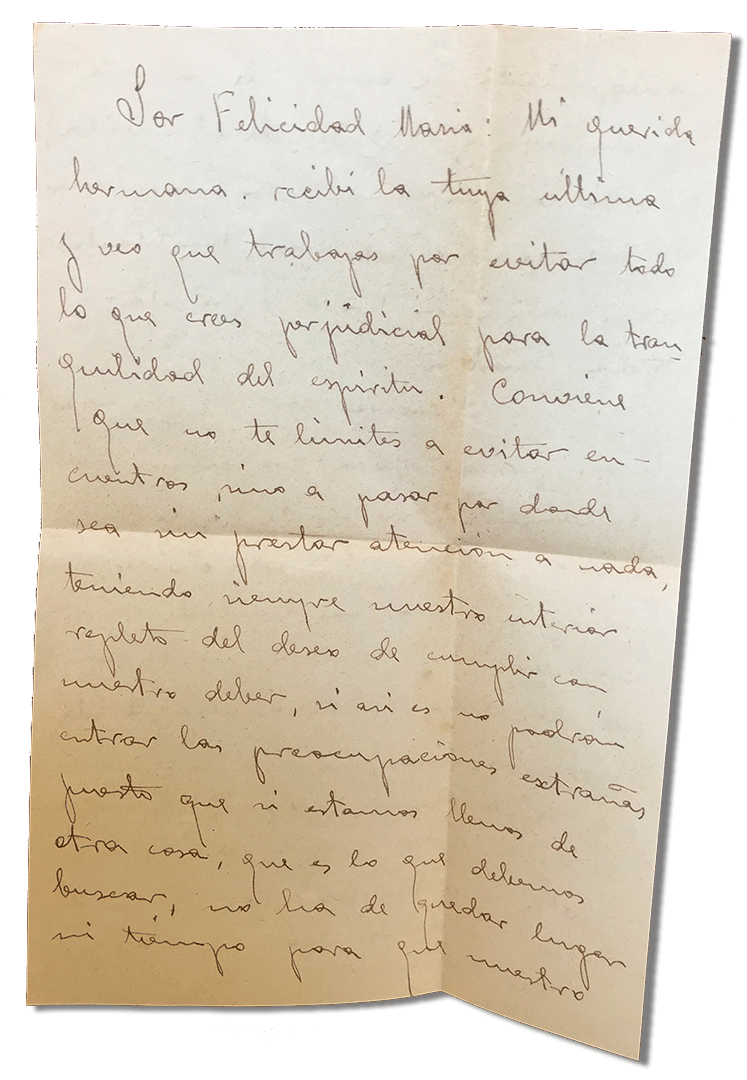 Sor Felicidad Maria: Mi querida
hermana. recibí la tuya última
y veo que trabajas por evitar todo
lo que crees perjudicial para la tran-
quilidad del espíritu. Conviene
que no te limites a evitar en-
cuentros, sino a pasar por donde
sea sin prestar atención a nada,
teniendo siempre nuestro interior
repleto del deseo de cumplir con
nuestro deber, si asi es no podrán
entrar las preocupaciones extrañas
puesto que si estamos llenos de
otra cosa, que es lo que debemos
buscar, no ha de quedar lugar
ni tiempo para que nuestro